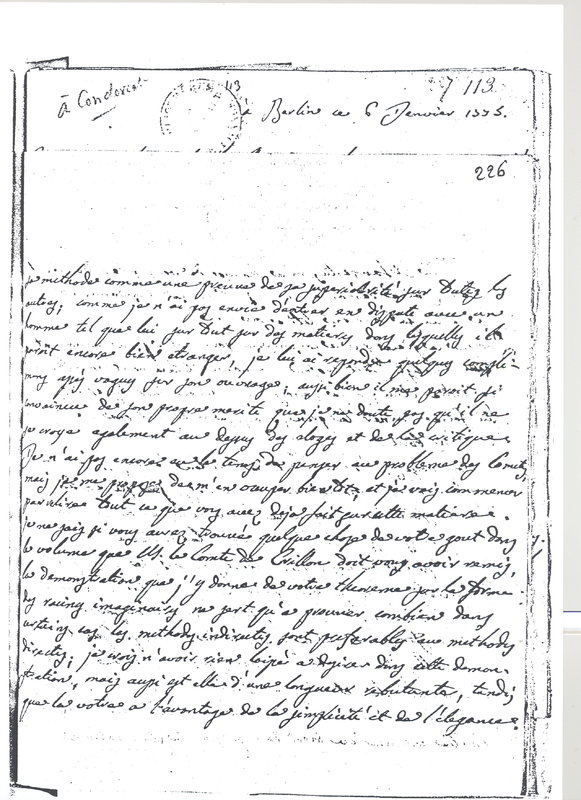 à Condorcet 113
7 113
à Berlin ce 6 Janvier 1775.
226
sa methode comme une preuve de sa superiorité sur toutes les
autres; comme je n'ai pas envie d'entrer en dispute avec un
homme tel que lui sur tout sur des matieres dans lesquelles il
paroit encore bien etranger, je lui ai repondu quelques compli-
mens assés vagues sur son ouvrage; aussi bien il me paroit si
convaincu de son propre merite que je ne doute pas qu'il ne
se croye egalement au dessus des eloges et de la critique.
Je n'ai pas encore eu le tems de penser au probleme des Cometes,
mais je me propose de m'en occuper bientot et je vais commencer
par relire tout ce que vous avez deja fait sur cette matiere.
je ne sais si vous aurez trouvé quelque chose de votre gout dans
le volume que M. le Comte de Crillon doit vous avoir remis,
la demonstration que j'y donne de votre theoreme sur la forme
des racines imaginaires ne sert qu'a prouver combien dans
certains cas les methodes indirectes sont preferables aux methodes
directes; je crois n'avoir rien laissé a desirer dans cette demons-
tration, mais aussi est elle d'une longueur rebutante, tandis
que la votre a l'avantage de la simplicité et de l'elegance.